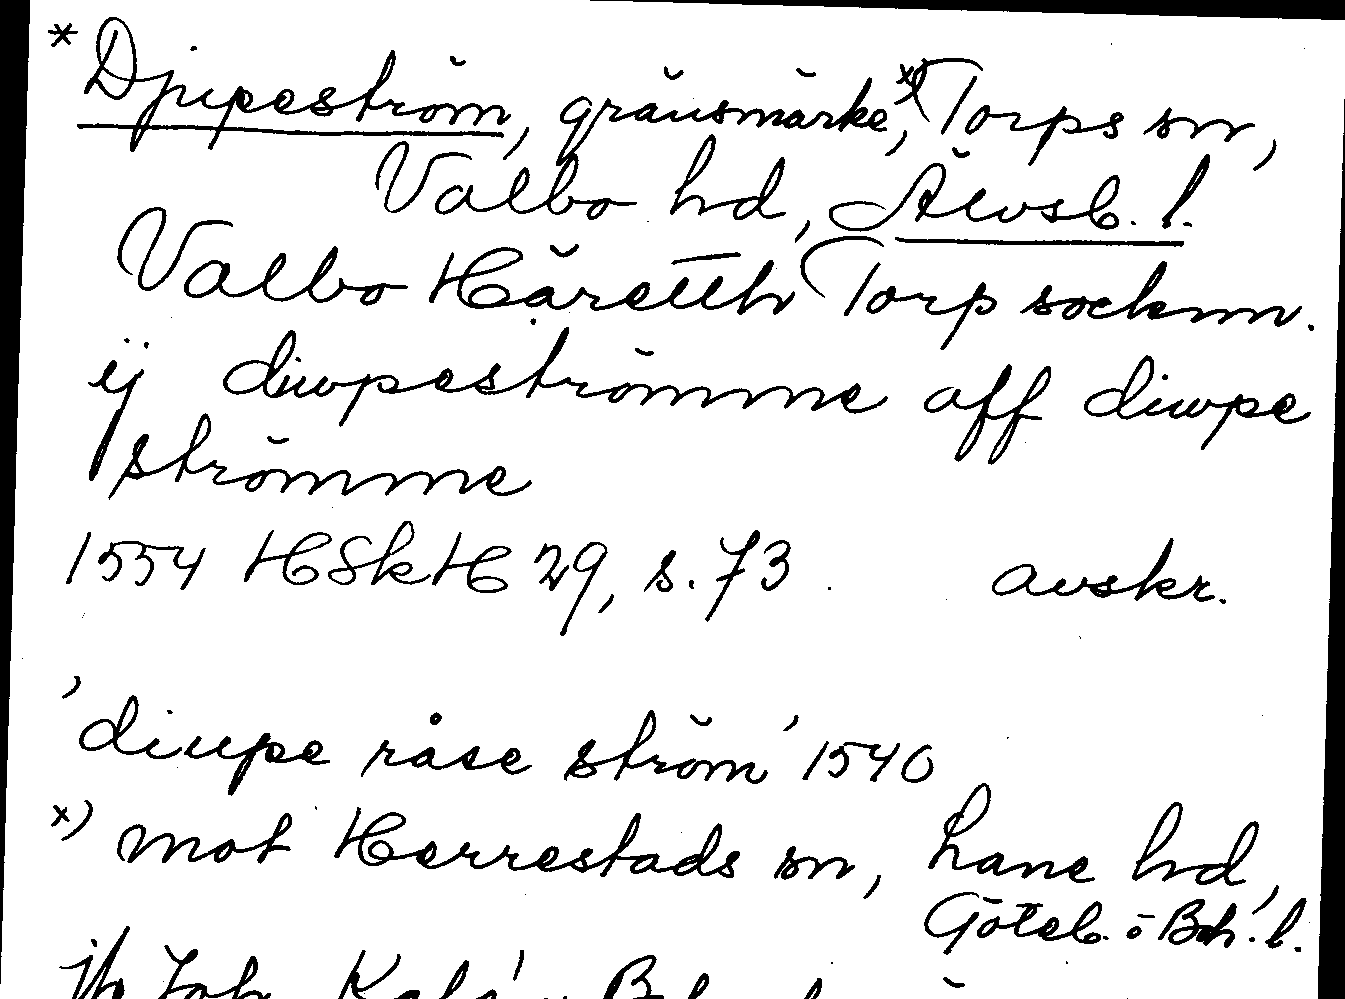 * Djupeström, gränsmärke,x) Torps sn,
Valbo hd, Älvsb. l.
Valbo Häretth Torp socknn.
ij diwpeströmme aff diwpe
strömme
1554 HSkH 29, s. 73. avskr.
'diupe råse ström' 1540
x) mot Herrestads sn, Lane hd,
Göteb. o Boh. l.